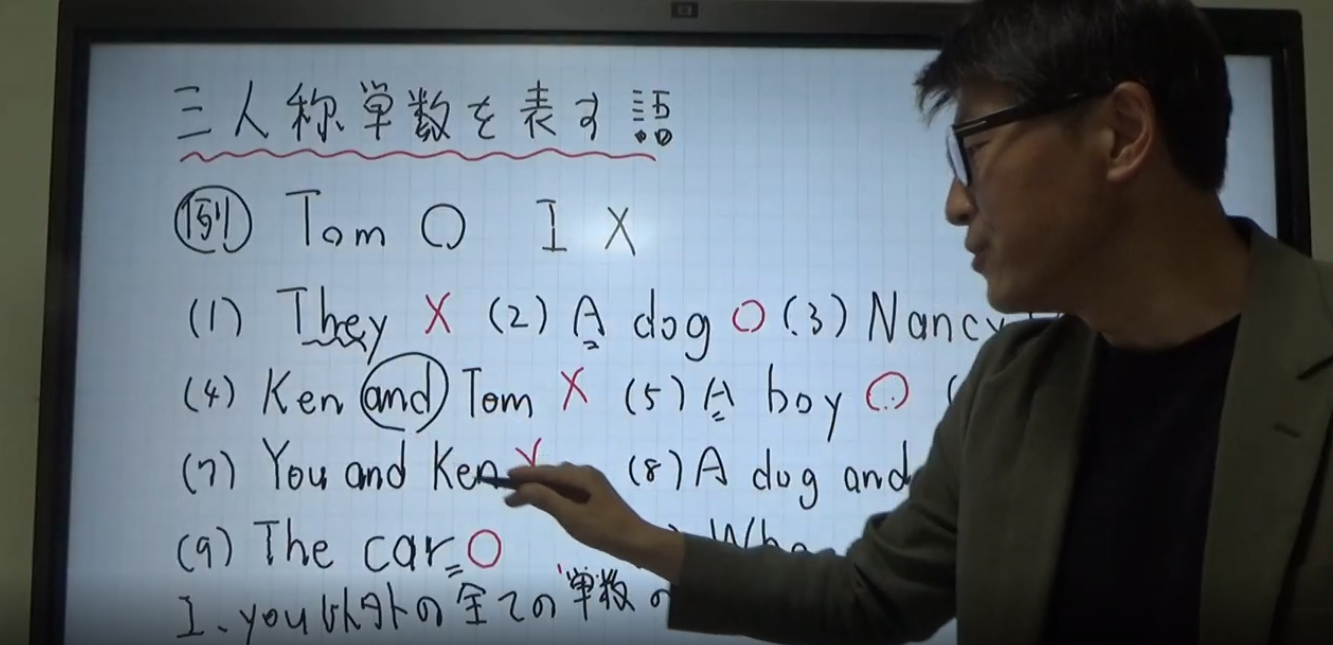 三人称単数を表す語
例 Tom ○ I X
(1) They X (2) A dog ○ (3) Nancy
(4) Ken and Tom X (5) A boy ○ (
(7) You and Ken X (8) A dog and
(9) The car ○
I、you以外の全ての単数の